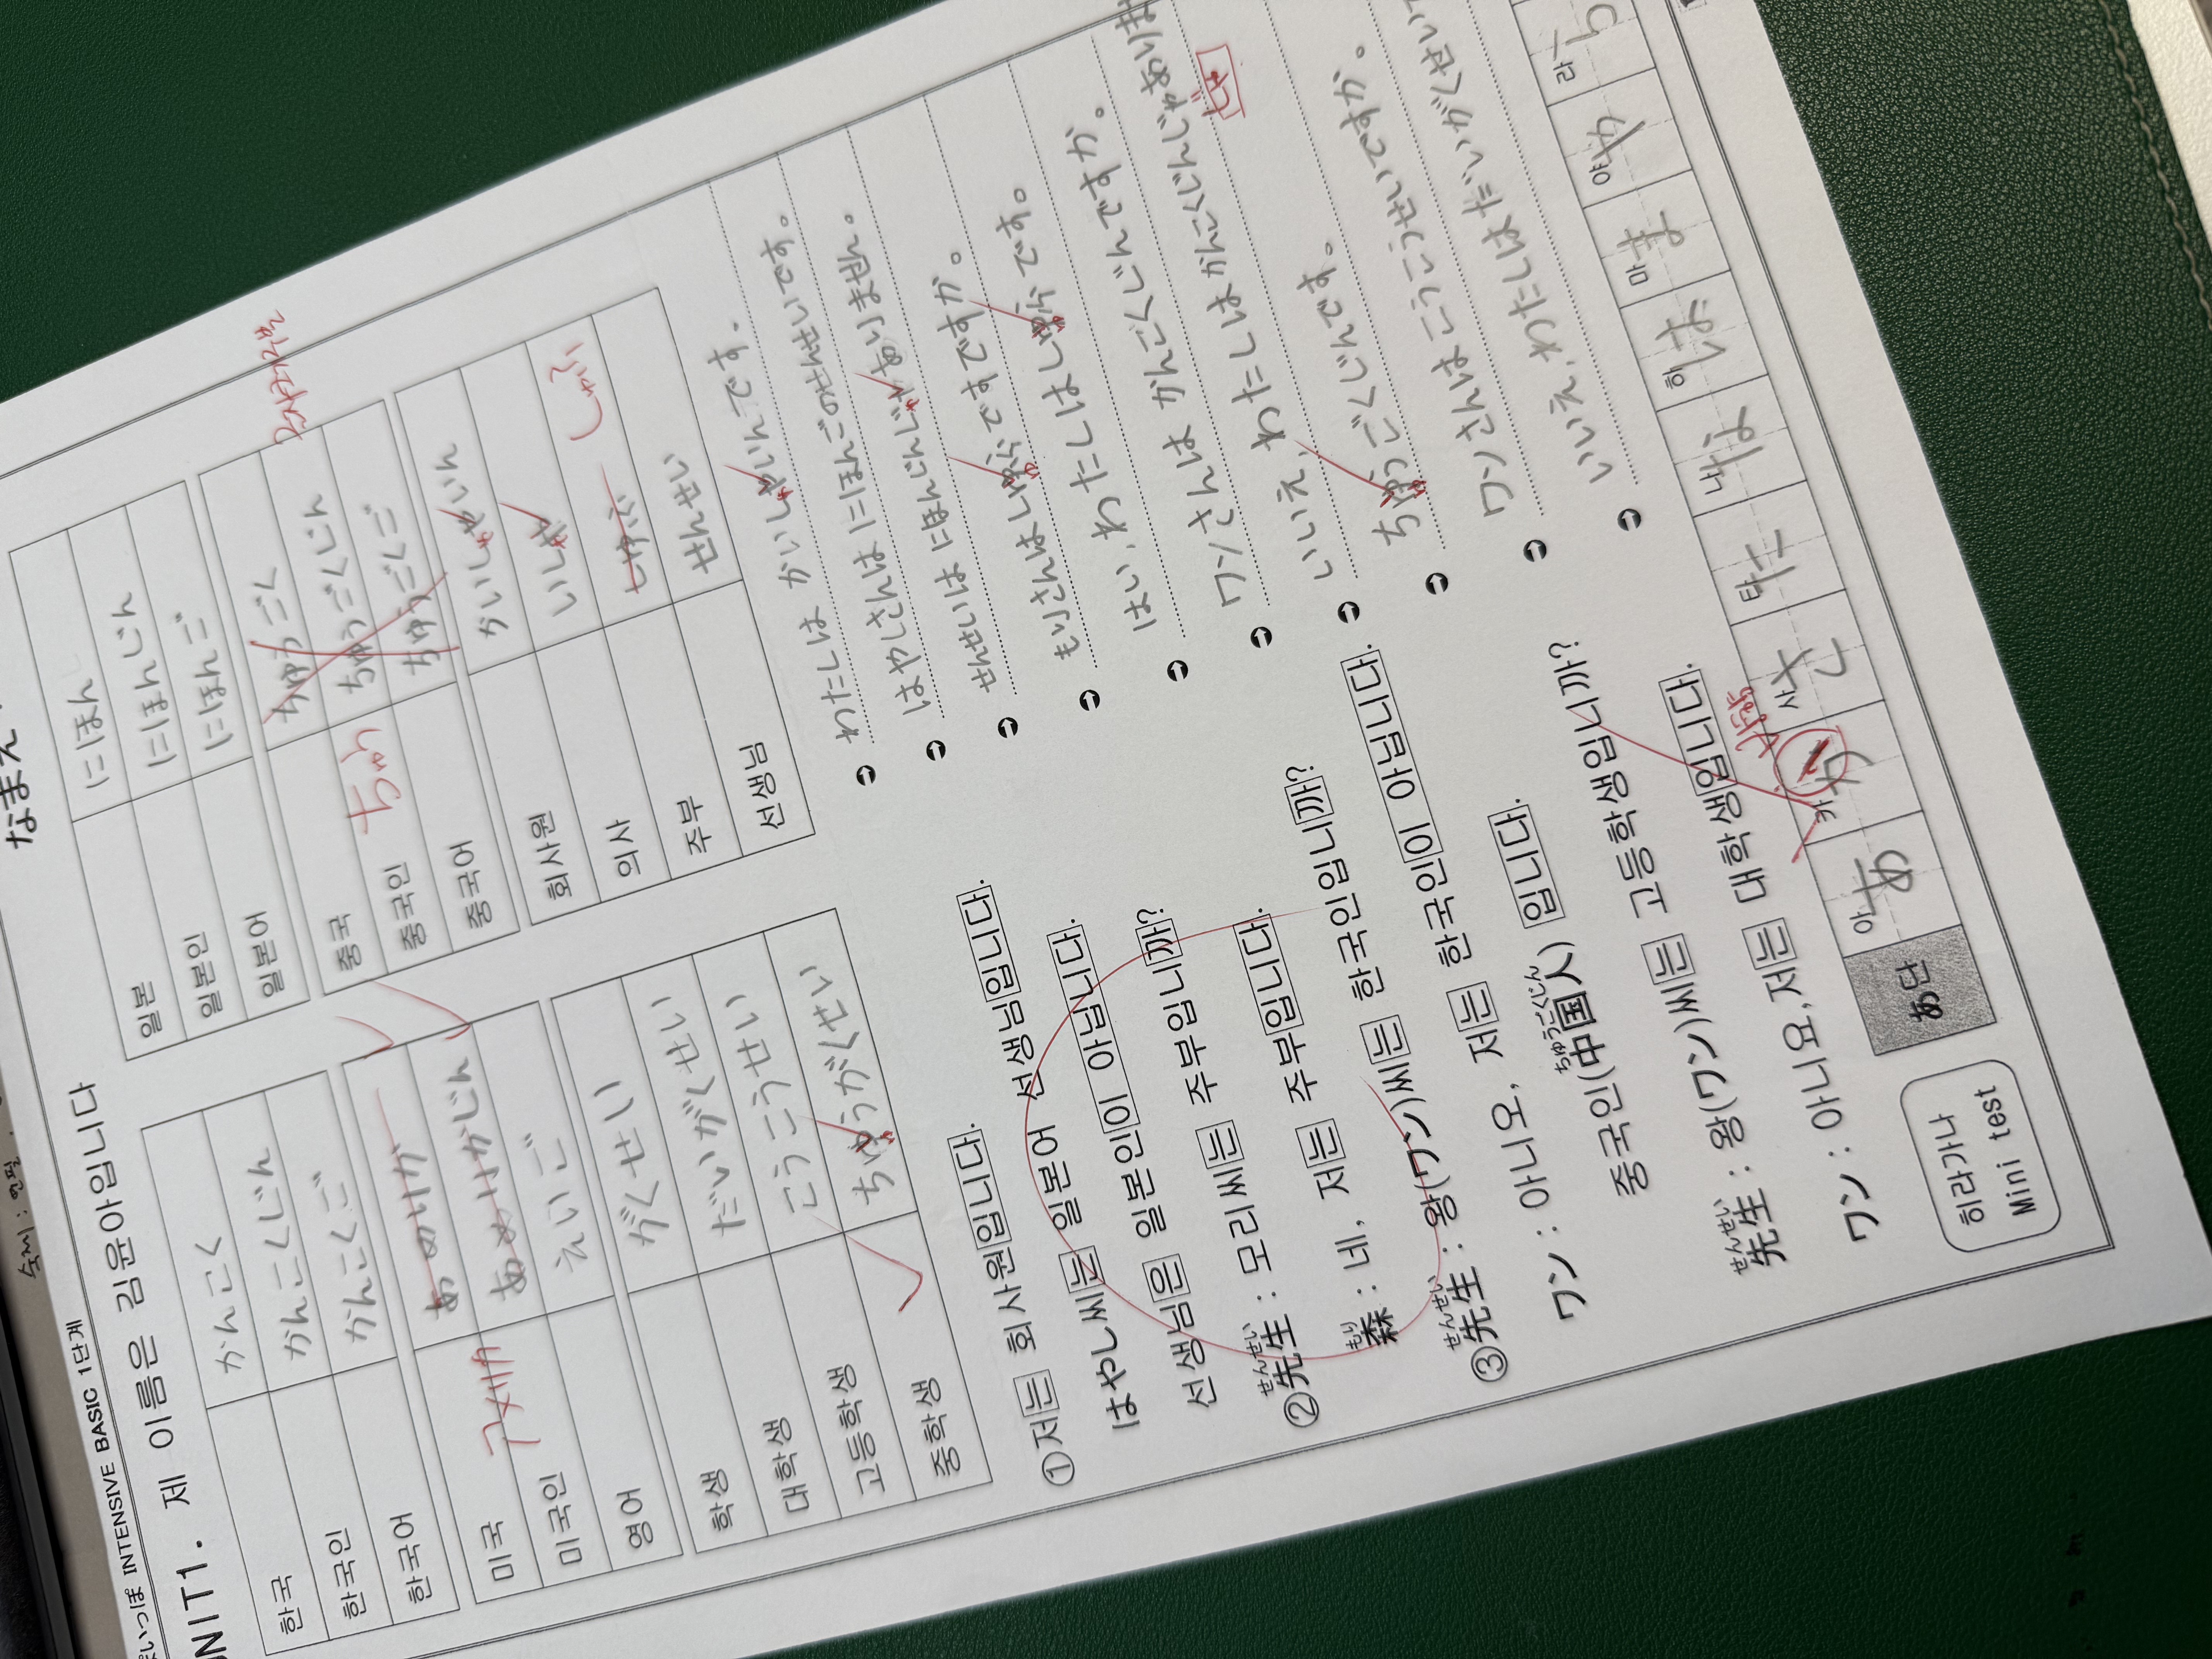 숙제 : 연필
ぽいっぽ INTENSIVE BASIC 1단계
UNIT1. 제 이름은 김윤아입니다
なまえ
한국 かんこく
한국인 かんこくじん
한국어 かんこくご
미국 あめりか
미국인 あめりかじん
영어 えいご
학생 がくせい
대학생 だいがくせい
고등학생 こうこうせい
중학생 ちゅうがくせい
일본 にほん
일본인 にほんじん
일본어 にほんご
중국 ちゅうごく
중국인 ちゅうごくじん
중국어 ちゅうごくご
ちゅう
회사원 かいしゃいん
의사 いしゃ
주부 しゅふ
しゅふ
선생님 せんせい
①저는 회사원입니다. ➡ わたしは かいしゃいんです。
はやし씨는 일본어 선생님입니다. ➡ はやしさんは にほんごのせんせいです。
선생님은 일본인이 아닙니다. ➡ せんせいは にほんじんじゃありません。
②先生 : 모리씨는 주부입니까? ➡ もりさんは しゅふですですか。
せんせい
森 : 네, 저는 주부입니다. ➡ はい、わたしは しゅふです。
もり
③先生 : 왕(ワン)씨는 한국인입니까? ➡ ワンさんは かんこくじんですか。
せんせい
ワン : 아니오, 저는 한국인이 아닙니다. ➡ いいえ、わたしは かんこくじんじゃありま
じゃ
중국인(中国人) 입니다. ➡ ちゅうごくじんです。
ちゅうごくじん
先生 : 왕(ワン)씨는 고등학생입니까? ➡ ワンさんは こうこうせいですか。
せんせい
ワン : 아니요, 저는 대학생입니다. ➡ いいえ、わたしは だいがくせい
히라가나
Mini test
あ단
아 あ
카 か
사 さ
타 た
나 な
하 は
마 ま
야 や
라 ら